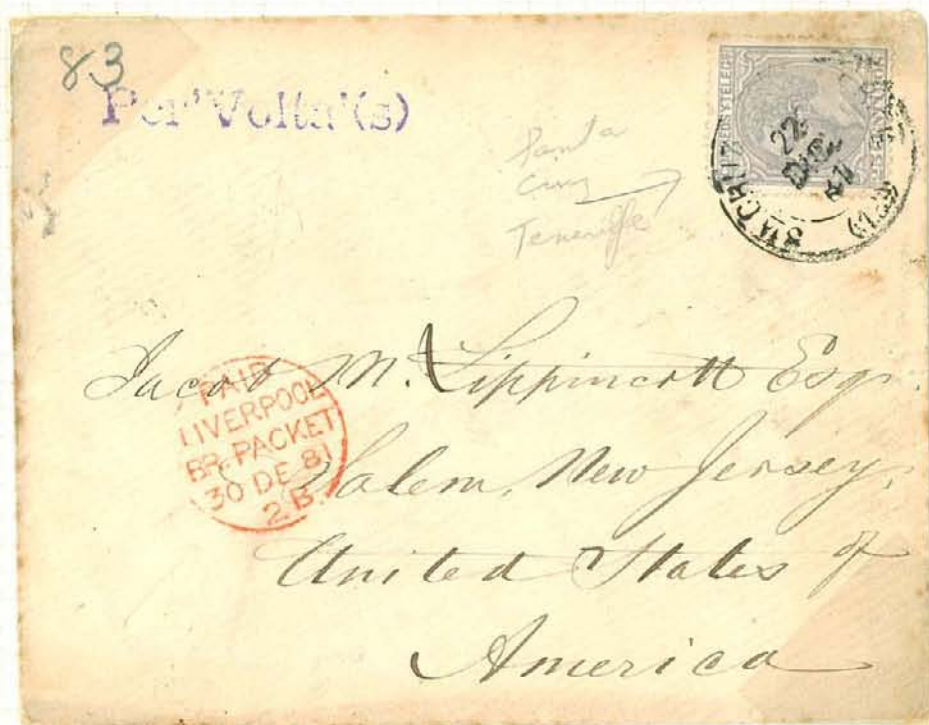 83
Per 'Volta' (s)
Santa
Cruz
Tenerife
22
DIC
81
Jacob M. Lippincott Esqr.
PAID
LIVERPOOL
BR. PACKET
30 DE 81
2B.
Salem, New Jersey,
United States of
America